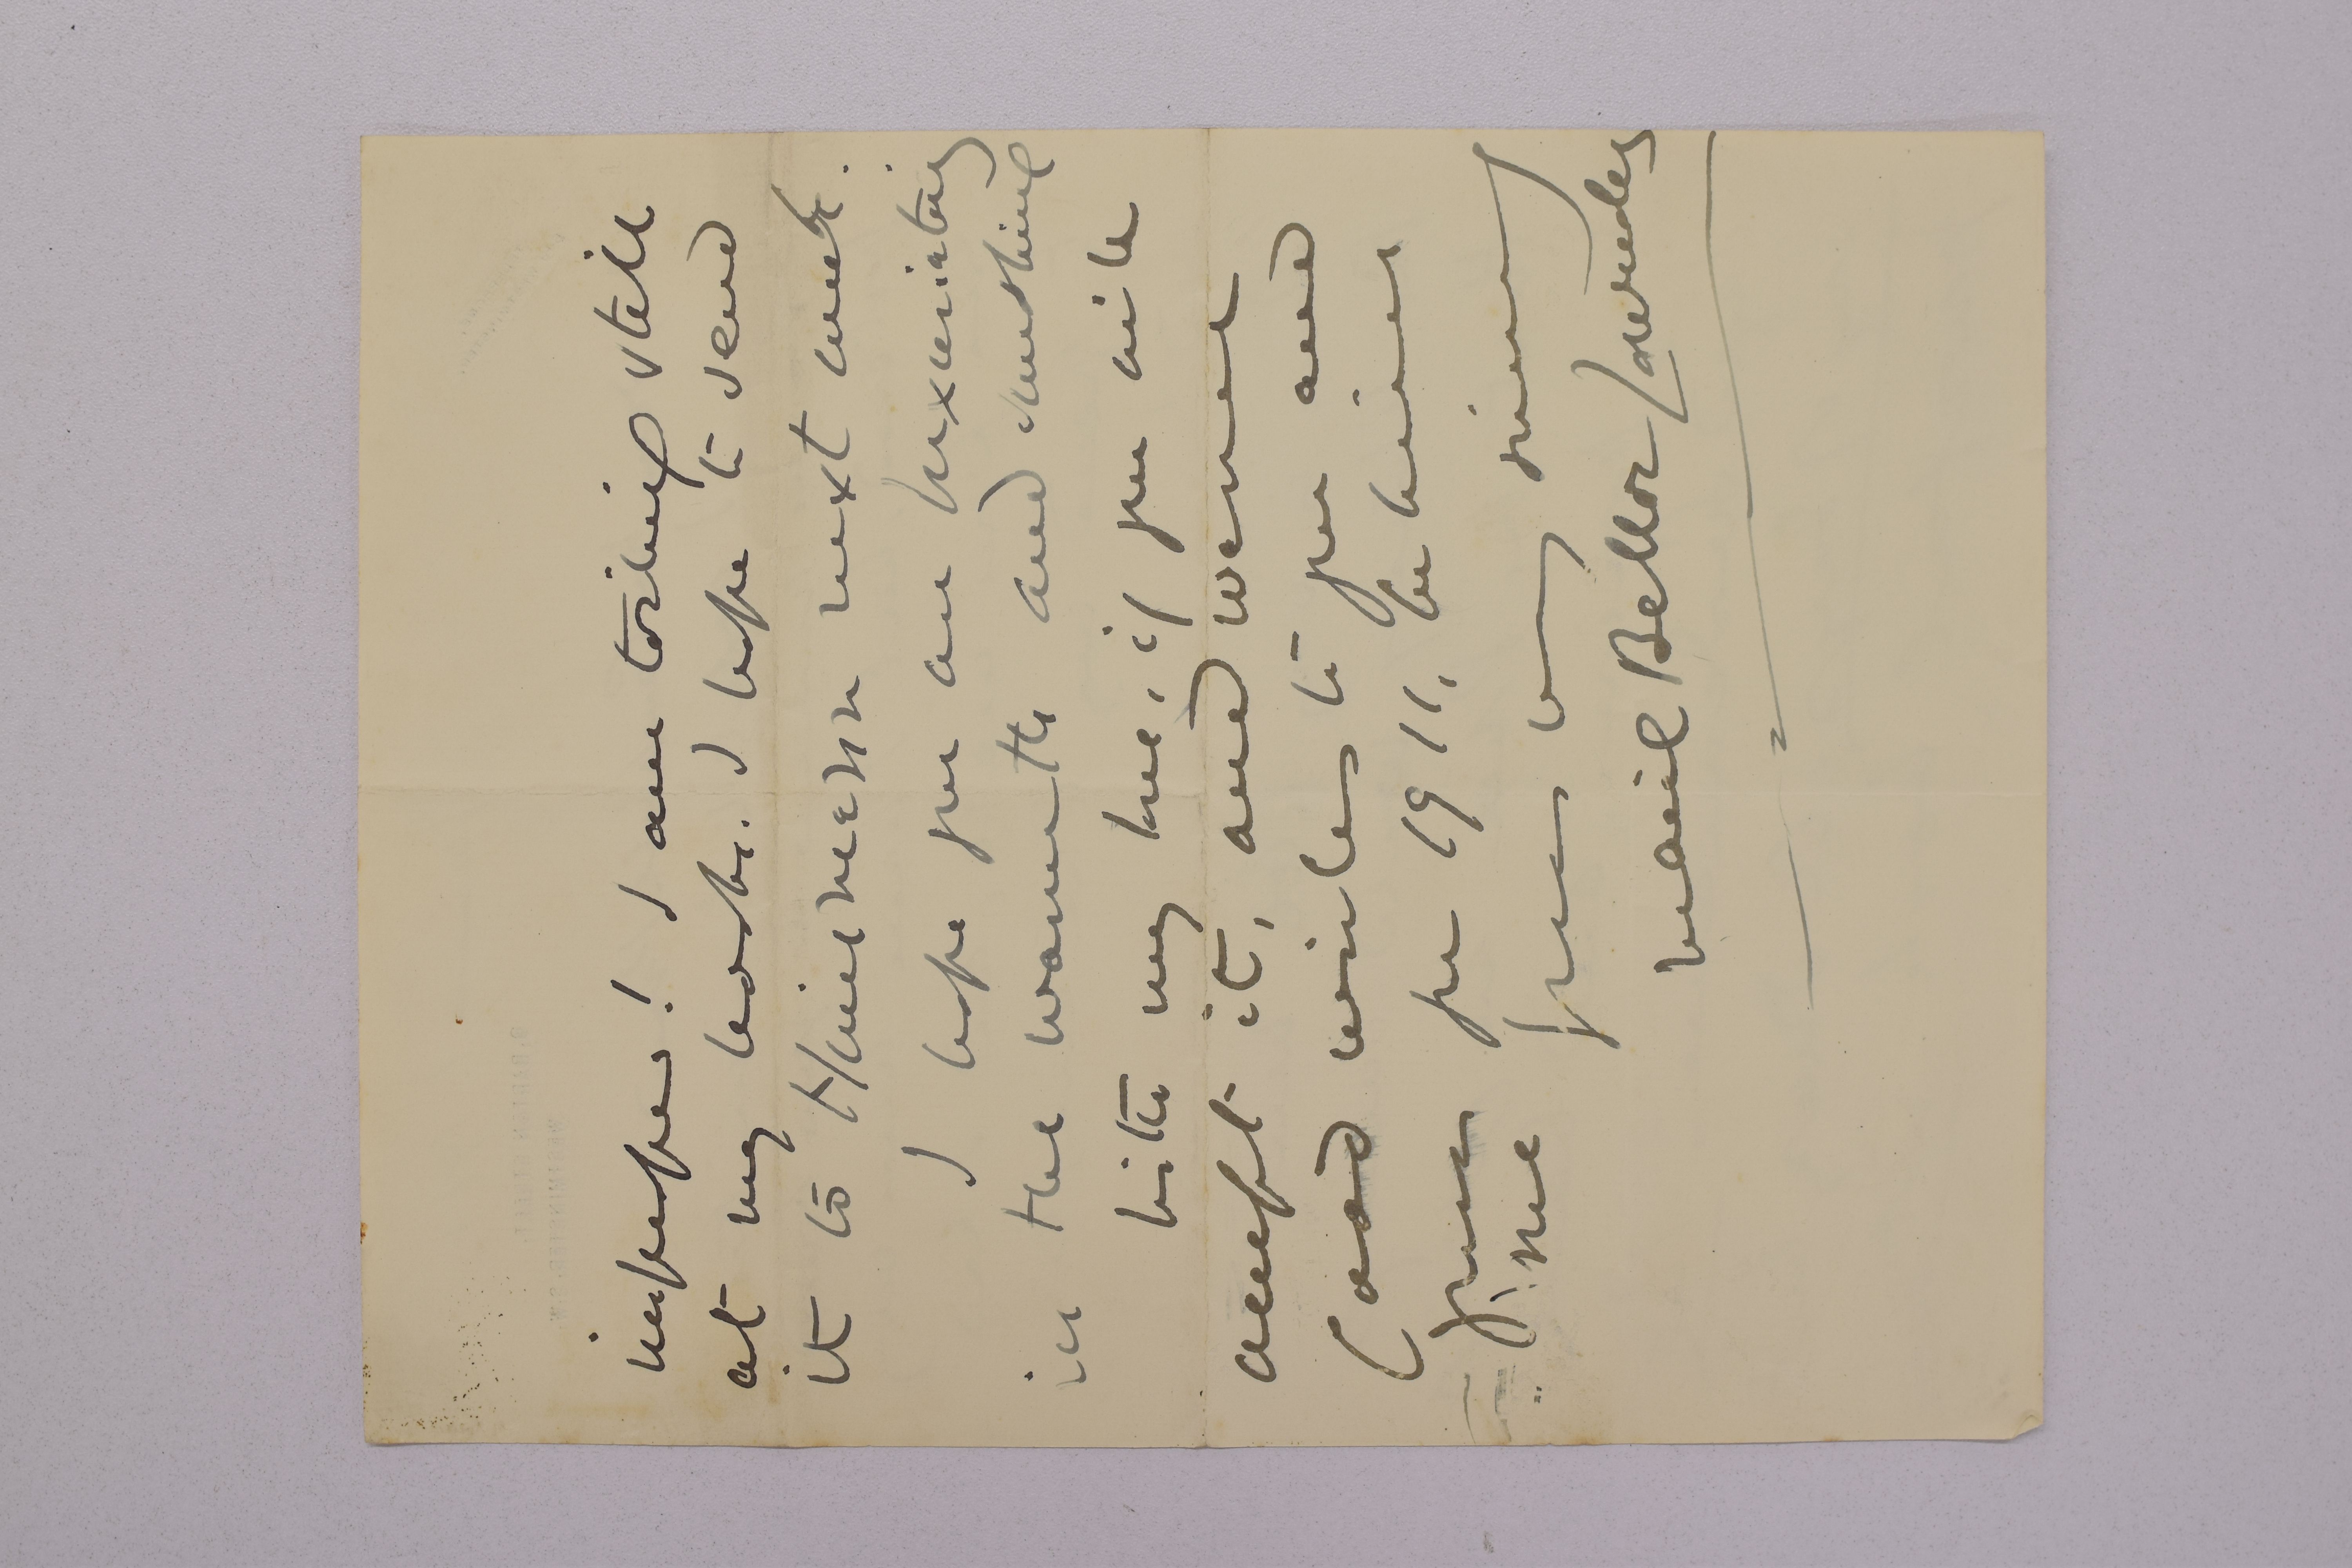 I am toiling still
at my book. I hope to send
it to Heinemann next week.
I hope you are luxuriating
in the warmth and sunshine
With my love, if you will
accept it, and warmest
good wishes to you and
yours for 1911,
yours very sincerely
Marie Belloc Lowndes